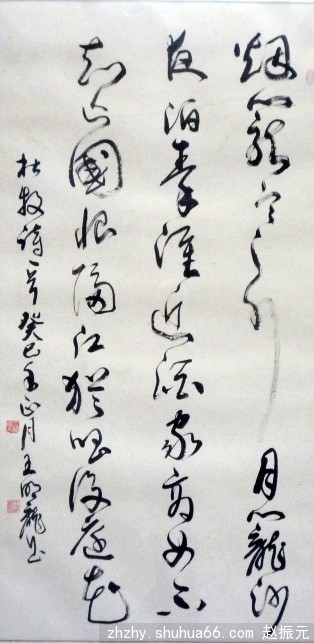 烟籠寒水月籠沙
夜泊秦淮近酒家商女不
知亡國恨隔江猶唱後庭花
杜牧詩一首癸巳年正月王明龍书
zhzhy.shuhua66.com 赵振元